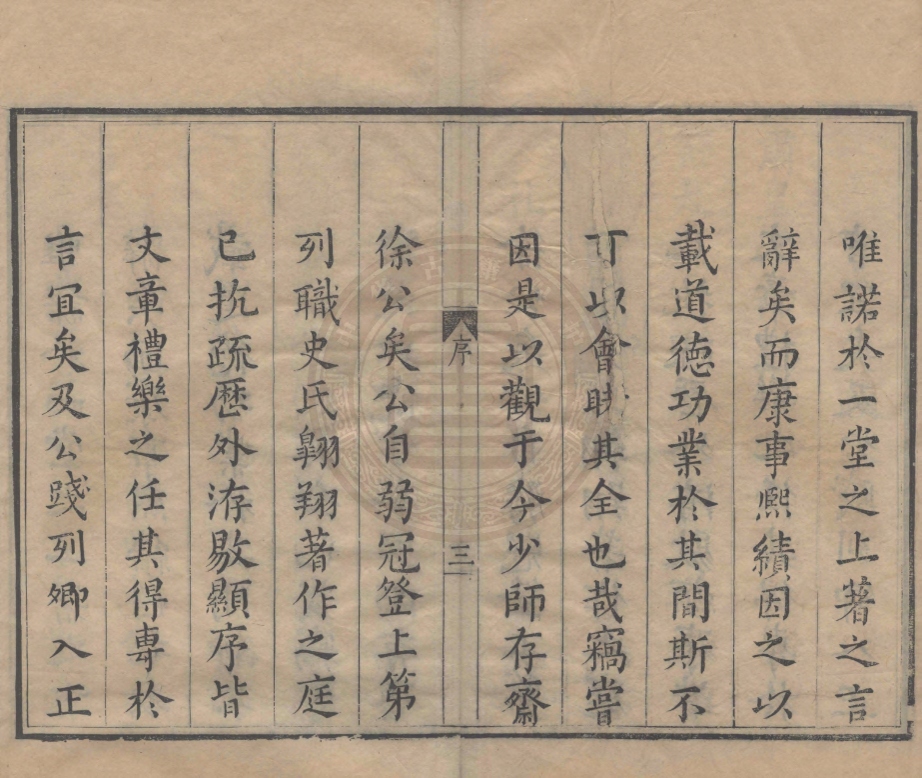 唯諾於一堂之上著之言
辭矣而康事熙績因之以
載道德功業於其間斯不
可以會其全也哉竊嘗
因是以觀于今少師存齋
序
三
徐公矣公自弱冠登上第
列職史氏翺翔著作之庭
已抗疏歷外洊敭顯序皆
文章禮樂之任其得專於
言宜矣及公踐列卿入正